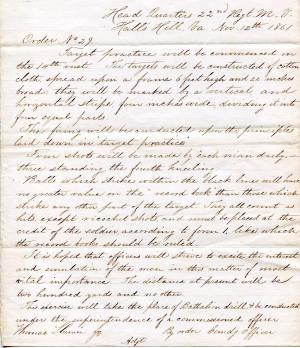 Head Quarters 22nd Regt. M. V.
Halls Hill, Va Nov. 12th 1861
Order No 29
Target practice will be commenced on
the 14th inst. The targets will be constructed of cotton
cloth, spread upon a frame 6 feet high and 22 inches
broad; they will be marked by a vertical and
horizontal stripe four inches wide, dividing it into
four equal parts.
The firing will be conducted upon the principles
laid down in target practice
Four shots will be made by each man daily—
three standing the fourth kneeling
Balls which strike within the black lines will have
no greater value in the record book than those which
strike any other part of the target. They all count as
hits except ricochet shots, and must be placed at the
credit of the soldier according to form 1, like which
the record books should be ruled
It is hoped that officers will strive to excite the interest
and emulation of the men in this matter of most
vital importance. The distance at present will be
two hundred yards and no other
This exercise will take the place of Battalion drill & be conducted
under the superintendence of a commissioned officer
Thomas Sherwin Jr By order Comdg Officer
Adjt